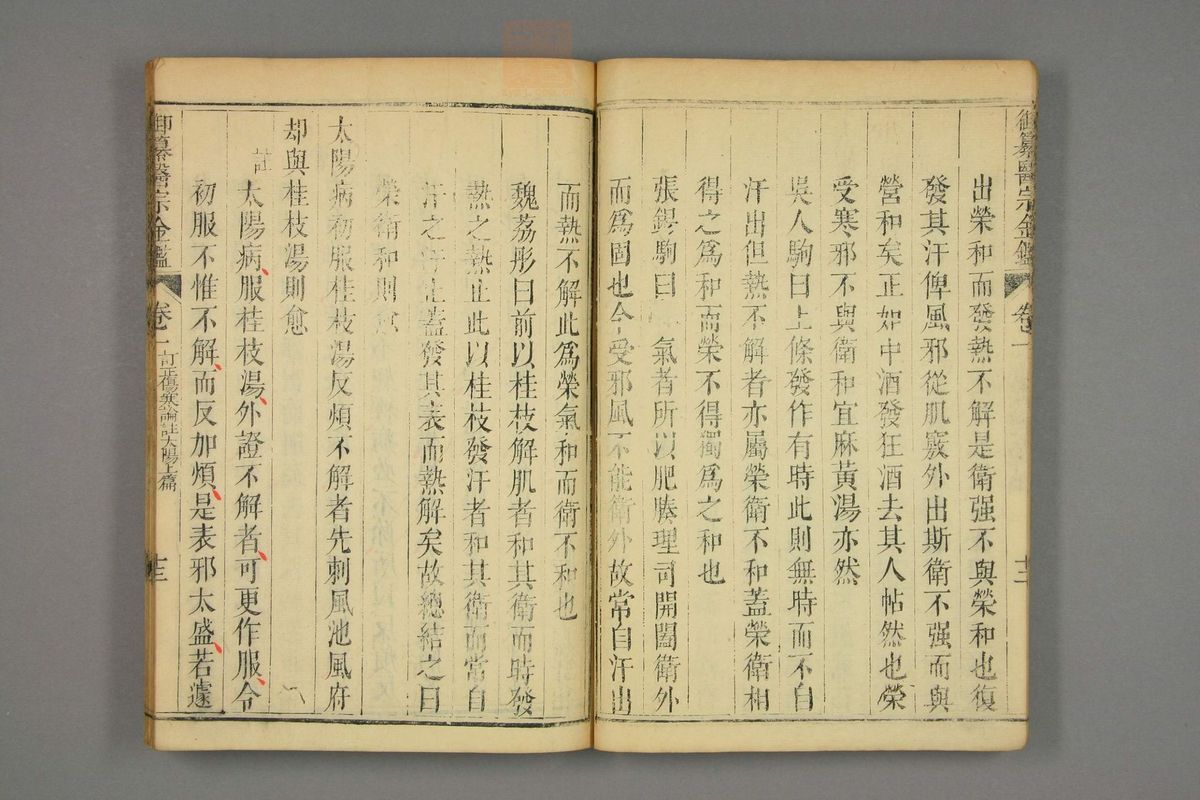 御纂醫宗金鑑 卷一 十二
出榮和而發熱不解是衛强不與榮和也復
發其汗俾風邪從肌竅外出斯衛不强而與
營和矣正如中酒發狂酒去其人帖然也榮
受寒邪不與衛和宜麻黃湯亦然
吳人駒曰上條發作有時此則無時而不自
汗出但熱不解者亦屬榮衛不和蓋榮衛相
得之爲和而榮不得獨爲之和也
張錫駒曰 氣者所以肥腠理司開闔衛外
而爲固也今受邪風不能衛外故常自汗出
而熱不解此爲榮氣和而衛不和也
魏荔彤曰前以桂枝解肌者和其衛而時發
熱之熱止此以桂枝發汗者和其衛而常自
汗之汗止蓋發其表而熱解矣故總結之曰
榮衛和則愈
太陽病初服桂枝湯反煩不解者先刺風池風府
却與桂枝湯則愈
註 太陽病服桂枝湯外證不解者可更作服令
初服不惟不解而反加煩是表邪太盛若遽
御纂醫宗金鑑 卷一 訂正傷寒論註太陽上篇 十三